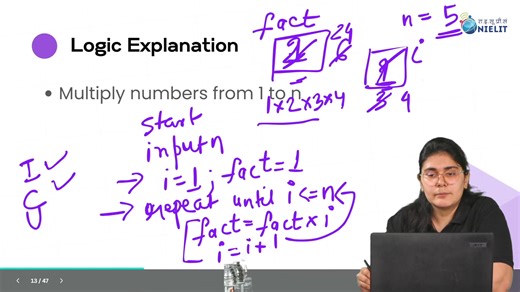 Logic Explanation
रा.इ.सू.प्रौ.सं
NIELIT
n = 5
fact
24
6
i
1×2×3×4
3 4
• Multiply numbers from 1 to n
start
input n
→ i = 1 ; fact = 1
→ repeat until i <= n
fact = fact × i
i = i + 1
I ✓
G ✓
13 / 47